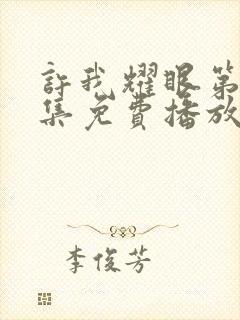 許我耀眼第
集免費播放
李俊芳